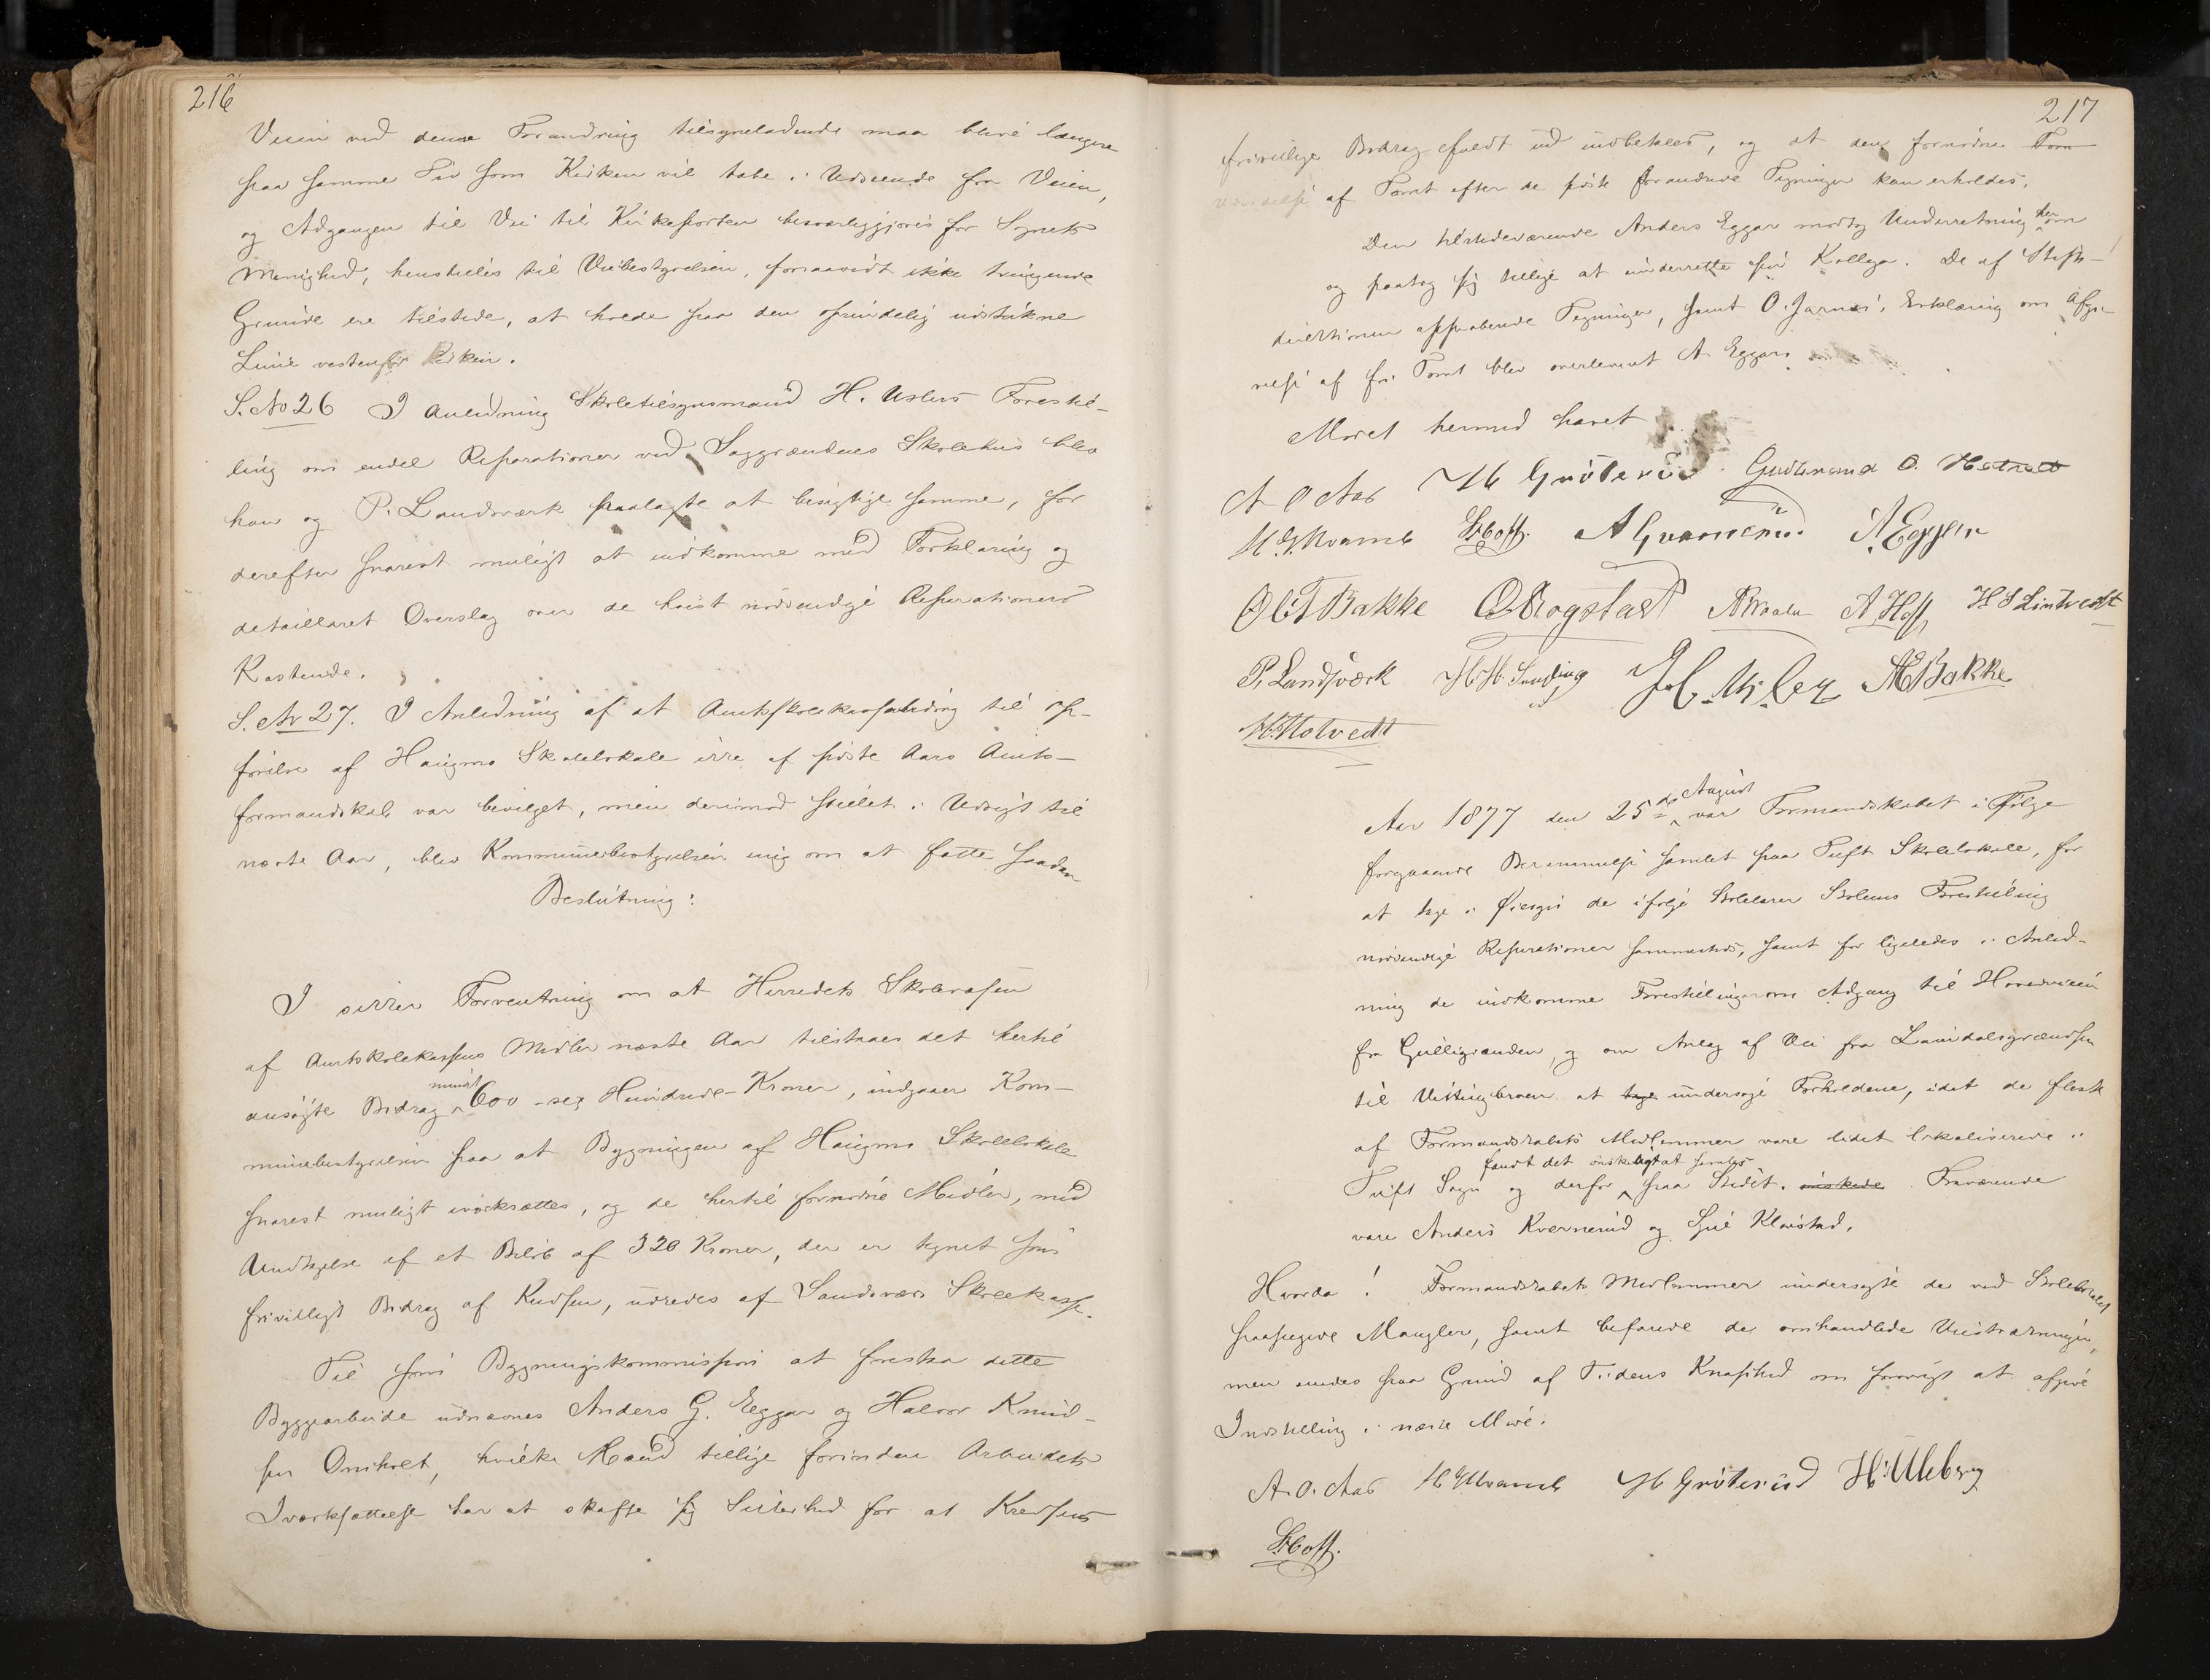 216
Veien ved denne Forandring tilsyneladende maa blive længere
paa samme Tid som Kirken vil tabe i Udseende fra Veien,
og Adgangen til Vei til Kirkeporten besværliggjøres for Sognets
Menighed, henstilles til Veibestyrelsen, forsaavidt ikke tvingende
Grunde ere tilstede, at holde paa den oprindelig udstukne
Linie vestenfor Kirken.
S. No 26 I Anledning Skoletilsynsmand H. Usler's Forestil-
ling om endel Reparationer ved Saggrændens Skolehus blev
han og P. Landsværk paalagte at besigtige samme, for
derefter snarest muligt at indkomme med Forklaring og
detailleret Overslag over de høist nødvendige Reparationers
Kostende.
S. No 27. I Anledning af at Amtsskolekassebidrag til Op-
førelse af Haugmo Skolelokale ikke af sidste Aars Amts-
formandskab var bevilget, men derimod stillet i Udsigt til
næste Aar, blev Kommunebestyrelsen enig om at fatte saadan
Beslutning:
I sikker Forventning om at Herredets Skolevæsen
af Amtskolekassens Midler næste Aar tilstaaes det hertil
ansøgte Bidrag mindst 600 - sex Hundrede - Kroner, indgaaer Kom-
munebestyrelsen paa at Bygningen af Haugmo Skolelokale
snarest muligt iværksættes, og de hertil fornødne Midler, med
Undtagelse af et Beløb af 320 Kroner, der er tegnet som
frivilligt Bidrag af Kredsen, udredes af Sandsværs Skolekasse.
Til som Bygningskommission at forestaa dette
Byggearbeide udnævnes Anders G. Eggar og Halvor Knud-
sen Omholt, hvilke Mænd tillige forinden Arbeidets
Iværksættelse har at skaffe sig Sikkerhed for at Kredsens
217
frivillige Bidrag fuldt ud indbetales, og at den fornødne Tom
Udvidelse af Tomt efter de sidste forandrede Tegninger kan erholdes.
Den tilstedeværende Anders Eggar modtog Underretning herom
og paatog sig tillige at underrette sin Kollega. De af Stifts-
direktionen approberede Tegninger, samt O. Jarnæs's Erklæring om Afgi-
velse af fri Tomt blev overleveret A. Eggar.
Mødet hermed hævet
A O Aas H Grøterud Gudbrand O. Hotvedt
H. G. Kvamb L. Hoff. A Gvarnerud A. Eggar
Ole T Bakke O Rogstad A Hoff H S Lintvedt
P. Landsværk H. H. Sunding H. Usler A E Bakke
H. Hotvedt
Aar 1877 den 25de August var Formandskabet i Følge
forgaaende Berammelse samlet paa Tuft Skolelokale, for
at tage i Øiesyn de ifølge Skolelærer Skolems Forestilling
nødvendige Reparationer sammesteds, samt for ligeledes i Anled-
ning de indkomne Forestillinger om Adgang til Hovedveien
fra Gulligrænden, og om Anlæg af Vei fra Laurdalsgrændsen
til Vittingbroen at tage undersøge Forholdene, idet de fleste
af Formandskabets Medlemmer vare lidet lokaliserede i
Tuft Sogn og derfor fandt det ønskeligt at samles paa Stedet. ønskede. Fraværende
vare Anders Kvernerud og Gul Klovstad.
Hvorda! Formandskabets Medlemmer undersøgte de ved Skolelokalet
paapegede Mangler, samt befarede de omhandlede Veistrækninger,
men enedes paa Grund af Tidens Knaphed om forøvrigt at afgive
Indstilling i næste Møde.
A. O. Aas H G Kvamb H Grøterud H. Ulleberg
L. Hoff.